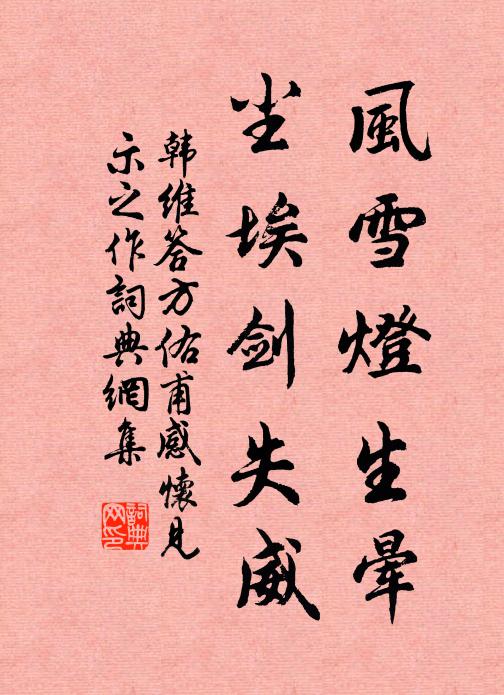 風雪燈生暈
尘埃劍失威
韩维答方佑甫感懷見
示之作詞典網集
詞典
网印